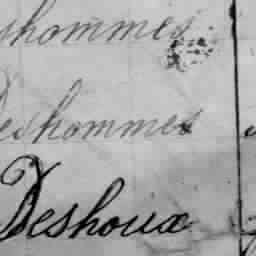 shommes
Deshommes
Deshoux